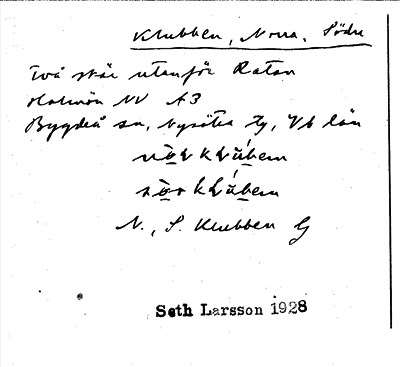 Klubben, Norra, Södra
Två skär utanför Ratan
Holmön NV A3
Bygdeå sn, Nysätra tg, Vb län
N., S. Klubben G
Seth Larsson 1928